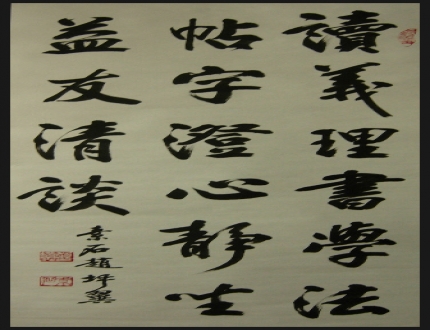 讀義理書學法
帖字澄心靜坐
益友清談
素石趙坪